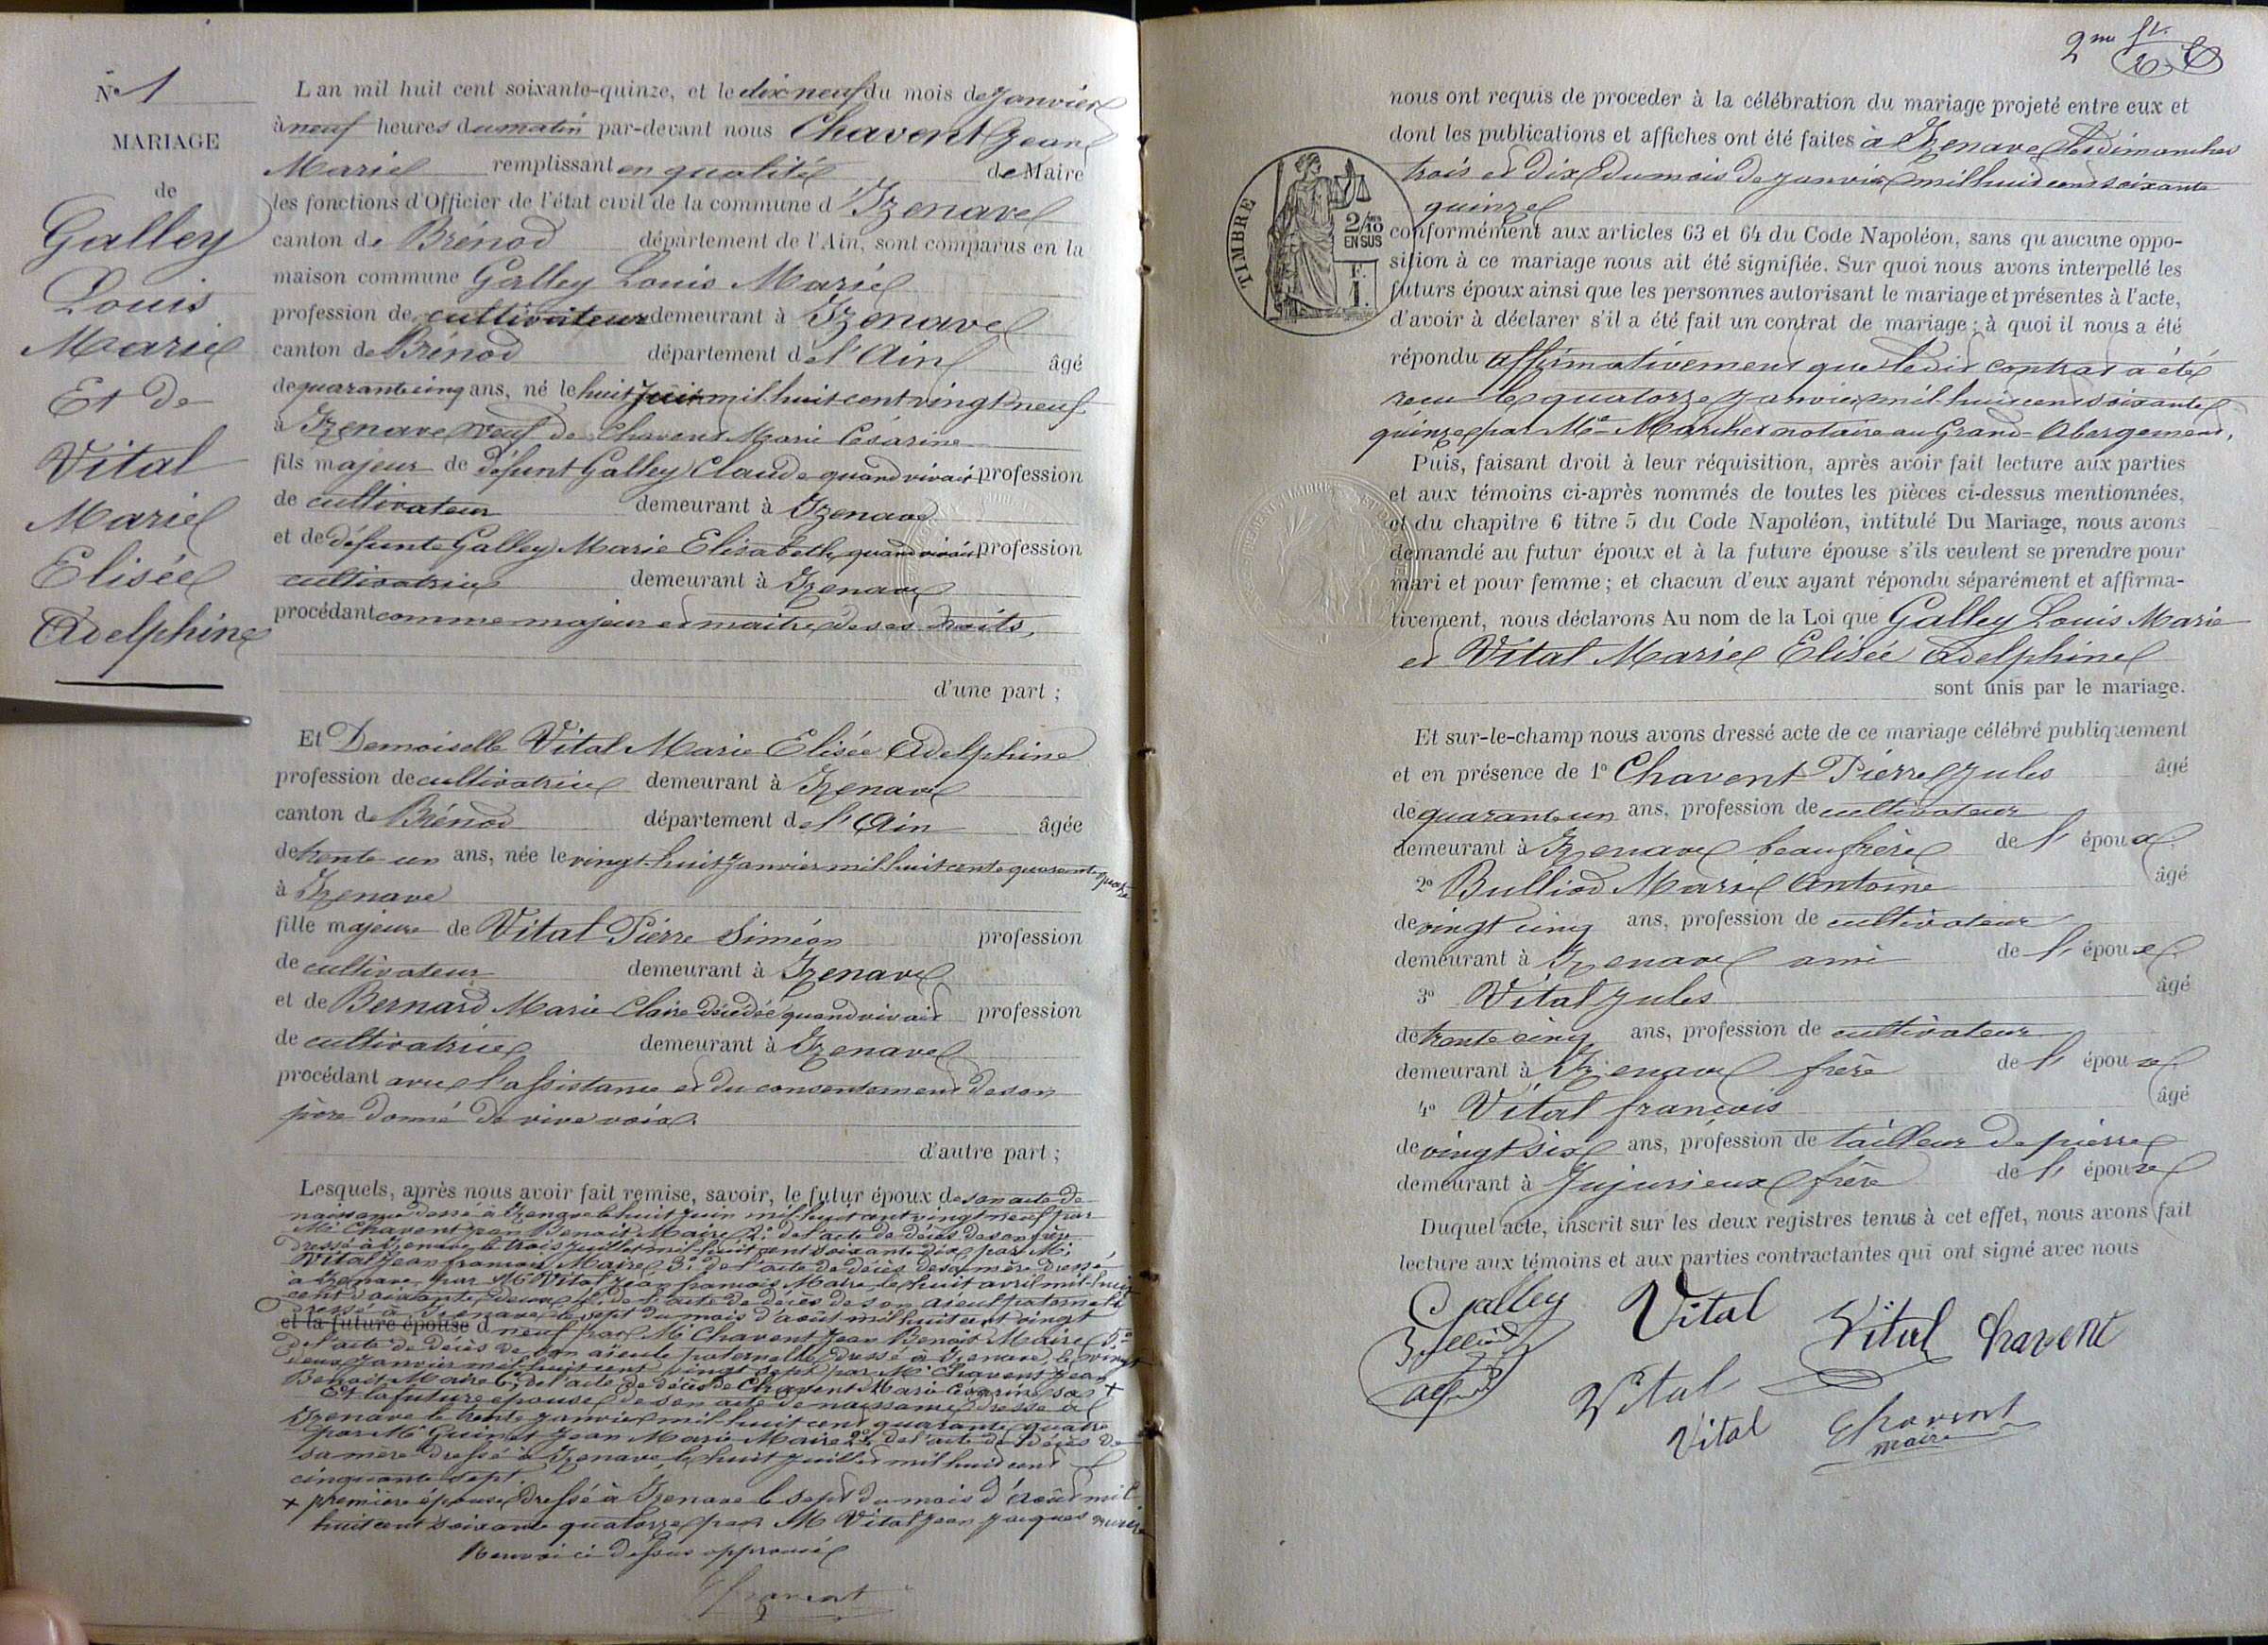 N° 1
MARIAGE
de
Galley
Louis
Marie
Et de
Vital
Marie
Elisée
Adelphine
L'an mil huit cent soixante-quinze, et le dix neuf du mois de Janvier
à neuf heures du matin par-devant nous Chavent Jean
Marie remplissant en qualité de Maire
les fonctions d'Officier de l'état civil de la commune d'Izenave
canton de Brénod département de l'Ain, sont comparus en la
maison commune Galley Louis Marie
profession de cultivateur demeurant à Izenave
canton de Brénod département de l'Ain âgé
de quarante cinq ans, né le huit Juin mil huit cent vingt neuf
à Izenave veuf de Chavent Marie Césarine
fils majeur de défunt Galley Claude quand vivait profession
de cultivateur demeurant à Izenave
et de défunte Galley Marie Elisabeth quand vivait profession
cultivatrice demeurant à Izenave
procédant comme majeur et maître de ses droits,
d'une part ;
Et Demoiselle Vital Marie Elisée Adelphine
profession de cultivatrice demeurant à Izenave
canton de Brénod département de l'Ain âgée
de trente un ans, née le vingt-huit Janvier mil huit cent quarante quatre
à Izenave
fille majeure de Vital Pierre Siméon profession
de cultivateur demeurant à Izenave
et de Bernard Marie Claire décédée quand vivait profession
de cultivatrice demeurant à Izenave
procédant avec l'assistance et du consentement de son
père donné de vive voix.
d'autre part ;
Lesquels, après nous avoir fait remise, savoir, le futur époux de son acte de
naissance dressé à Izenave le huit Juin mil huit cent vingt neuf par
Mr Chavent Jean Benoit Maire 2° de l'acte de décès de son père
dressé à Izenave le trois Juillet mil huit cent soixante dix par Mr
Vital Jean françois Maire 3° de l'acte de décès de sa mère dressé
à Izenave par Mr Vital Jean françois Maire le huit avril mil huit
cent soixante deux 4° de l'acte de décès de son aieul paternel
dressé à Izenave le sept du mois d'août mil huit cent vingt
et la future épouse d neuf par Mr Chavent Jean Benoit Maire 5°
de l'acte de décès de son aieule paternelle dressé à Izenave le vingt
deux Janvier mil huit cent vingt sept par Mr Chavent Jean
Benoit Maire 6° de l'acte de décès de Chavent Marie Césarine sa +
Et la future épouse de son acte de naissance dressé à
Izenave le trente Janvier mil huit cent quarante quatre
par Mr Guinet Jean Marie Maire 2° de l'acte de décès de
sa mère dressé à Izenave le huit Juillet mil huit cent
cinquante sept
+ première épouse dressé à Izenave le sept du mois d'Août mil
huit cent soixante quatorze par M Vital Jean Jacques maire
Renvoi ci dessus approuvé
Chavent
2me ft.
nous ont requis de proceder à la célébration du mariage projeté entre eux et
dont les publications et affiches ont été faites à Izenave les dimanches
trois et dix du mois de Janvier mil huit cent soixante
quinze
TIMBRE
2/10
EN SUS
F.
1.
conformément aux articles 63 et 64 du Code Napoléon, sans qu'aucune oppo-
sition à ce mariage nous ait été signifiée. Sur quoi nous avons interpellé les
futurs époux ainsi que les personnes autorisant le mariage et présentes à l'acte,
d'avoir à déclarer s'il a été fait un contrat de mariage ; à quoi il nous a été
répondu affirmativement que ledit contrat a été
recu le quatorze Janvier mil huit cent soixante
quinze par Me Marchet notaire au Grand-Abergement,
Puis, faisant droit à leur réquisition, après avoir fait lecture aux parties
et aux témoins ci-après nommés de toutes les pièces ci-dessus mentionnées,
et du chapitre 6 titre 5 du Code Napoléon, intitulé Du Mariage, nous avons
demandé au futur époux et à la future épouse s'ils veulent se prendre pour
mari et pour femme ; et chacun d'eux ayant répondu séparément et affirma-
tivement, nous déclarons Au nom de la Loi que Galley Louis Marie
et Vital Marie Elisée Adelphine
sont unis par le mariage.
Et sur-le-champ nous avons dressé acte de ce mariage célébré publiquement
et en présence de 1° Chavent Pierre Jules âgé
de quarante un ans, profession de cultivateur
demeurant à Izenave beau frère de l'époux.
2° Bulliod Marie Antoine âgé
de vingt cinq ans, profession de cultivateur
demeurant à Izenave ami de l'épouse.
3° Vital Jules âgé
de trente cinq ans, profession de cultivateur
demeurant à Izenave frère de l'épouse
4° Vital françois âgé
de vingt six ans, profession de tailleur de pierre
demeurant à Jujurieux frère de l'épouse
Duquel acte, inscrit sur les deux registres tenus à cet effet, nous avons fait
lecture aux témoins et aux parties contractantes qui ont signé avec nous
Galley Vital Vital Chavent
Bulliod
Vital
Vital
Chavent
maire